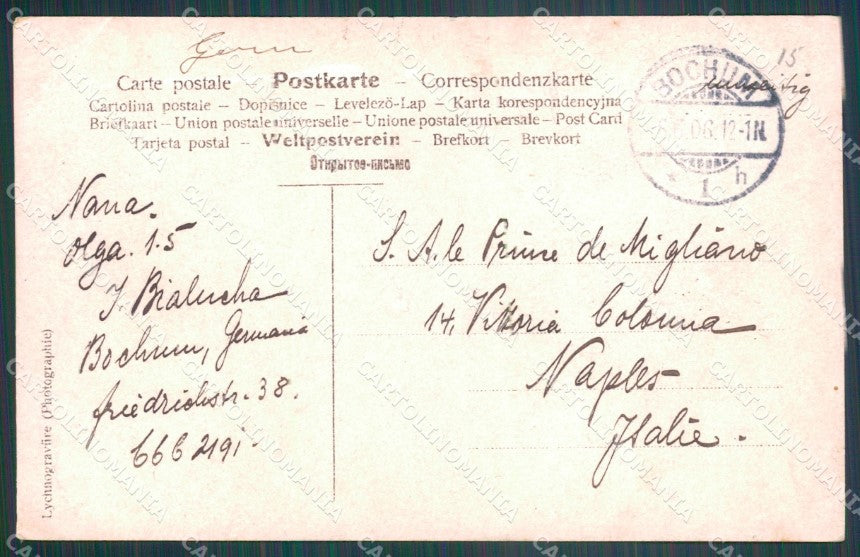 Germ
15
Carte postale – Postkarte – Correspondenzkarte
Cartolina postale – Dopisnice – Levelező-Lap – Karta korespondencyjna
Briefkaart – Union postale universelle – Unione postale universale – Post Card
Tarjeta postal – Weltpostverein – Brefkort – Brevkort
Открытое-письмо
BOCHUM
.06.12-1N.
* 1 h
Nana.
Olga. 1.5
J. Bialucha
Bochum, Germania
friedrichstr. 38.
666 2191
S. A. le Prince de Migliano
14, Vittoria Colonna
Naples
Italie.
Lychnogravüre (Photographie)
CARTOLINOMANIA